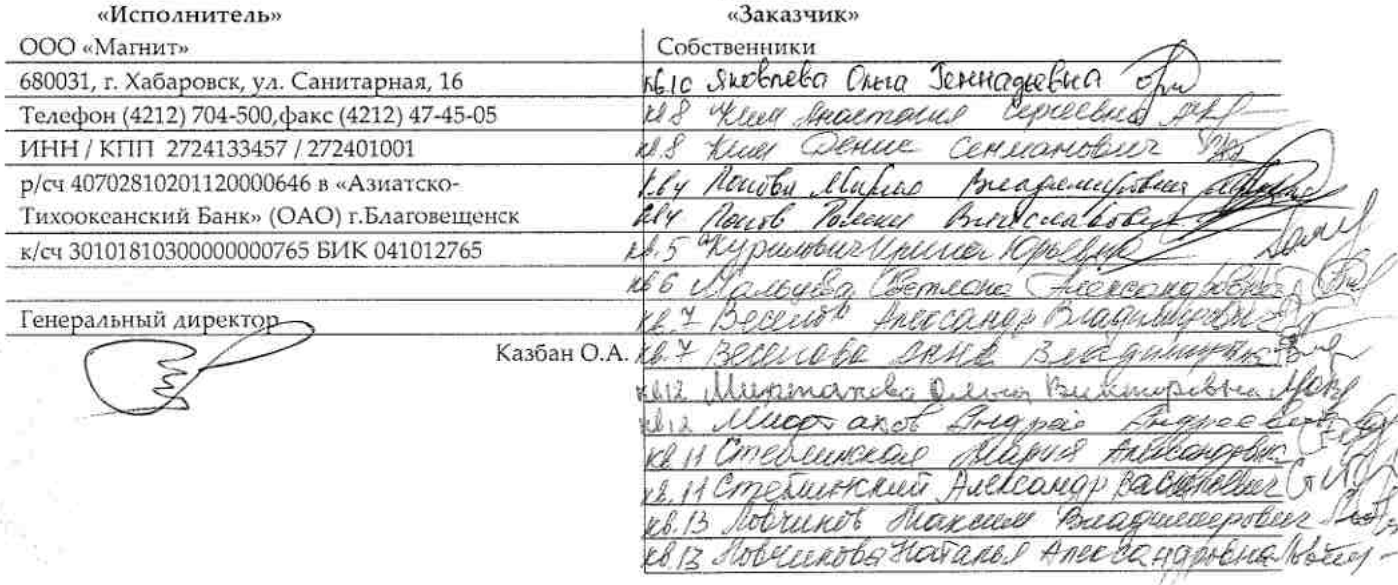 «Исполнитель»
ООО «Магнит»
680031, г. Хабаровск, ул. Санитарная, 16
Телефон (4212) 704-500,факс (4212) 47-45-05
ИНН / КПП 2724133457 / 272401001
р/сч 40702810201120000646 в «Азиатско-
Тихоокеанский Банк» (ОАО) г.Благовещенск
к/сч 30101810300000000765 БИК 041012765
Генеральный директор
Казбан О.А.
«Заказчик»
Собственники
кв.10 Яковлева Ольга Геннадьевна
кв 8 Ким Анастасия Сергеевна
кв.8 Ким Денис Сенманович
кв 4 Попова Мария Владимировна
кв 4 Попов Роман Вячеславович
кв.5 Курилович Ирина Юрьевна
кв 6 Мальцева Светлана Александровна
кв.7 Веселов Александр Владимирович
кв.7 Веселова Анна Владимировна
кв12 Мифтахова Ольга Викторовна
кв12 Мифтахов Андрей Андреевич
кв 11 Стеблинская Мария Александровна
кв.11 Стеблинский Александр Васильевич
кв.13 Ловчиков Максим Владимирович
кв 13 Ловчикова Наталья Александровна